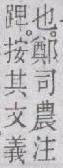 也。鄭司農注
跽。按其文義